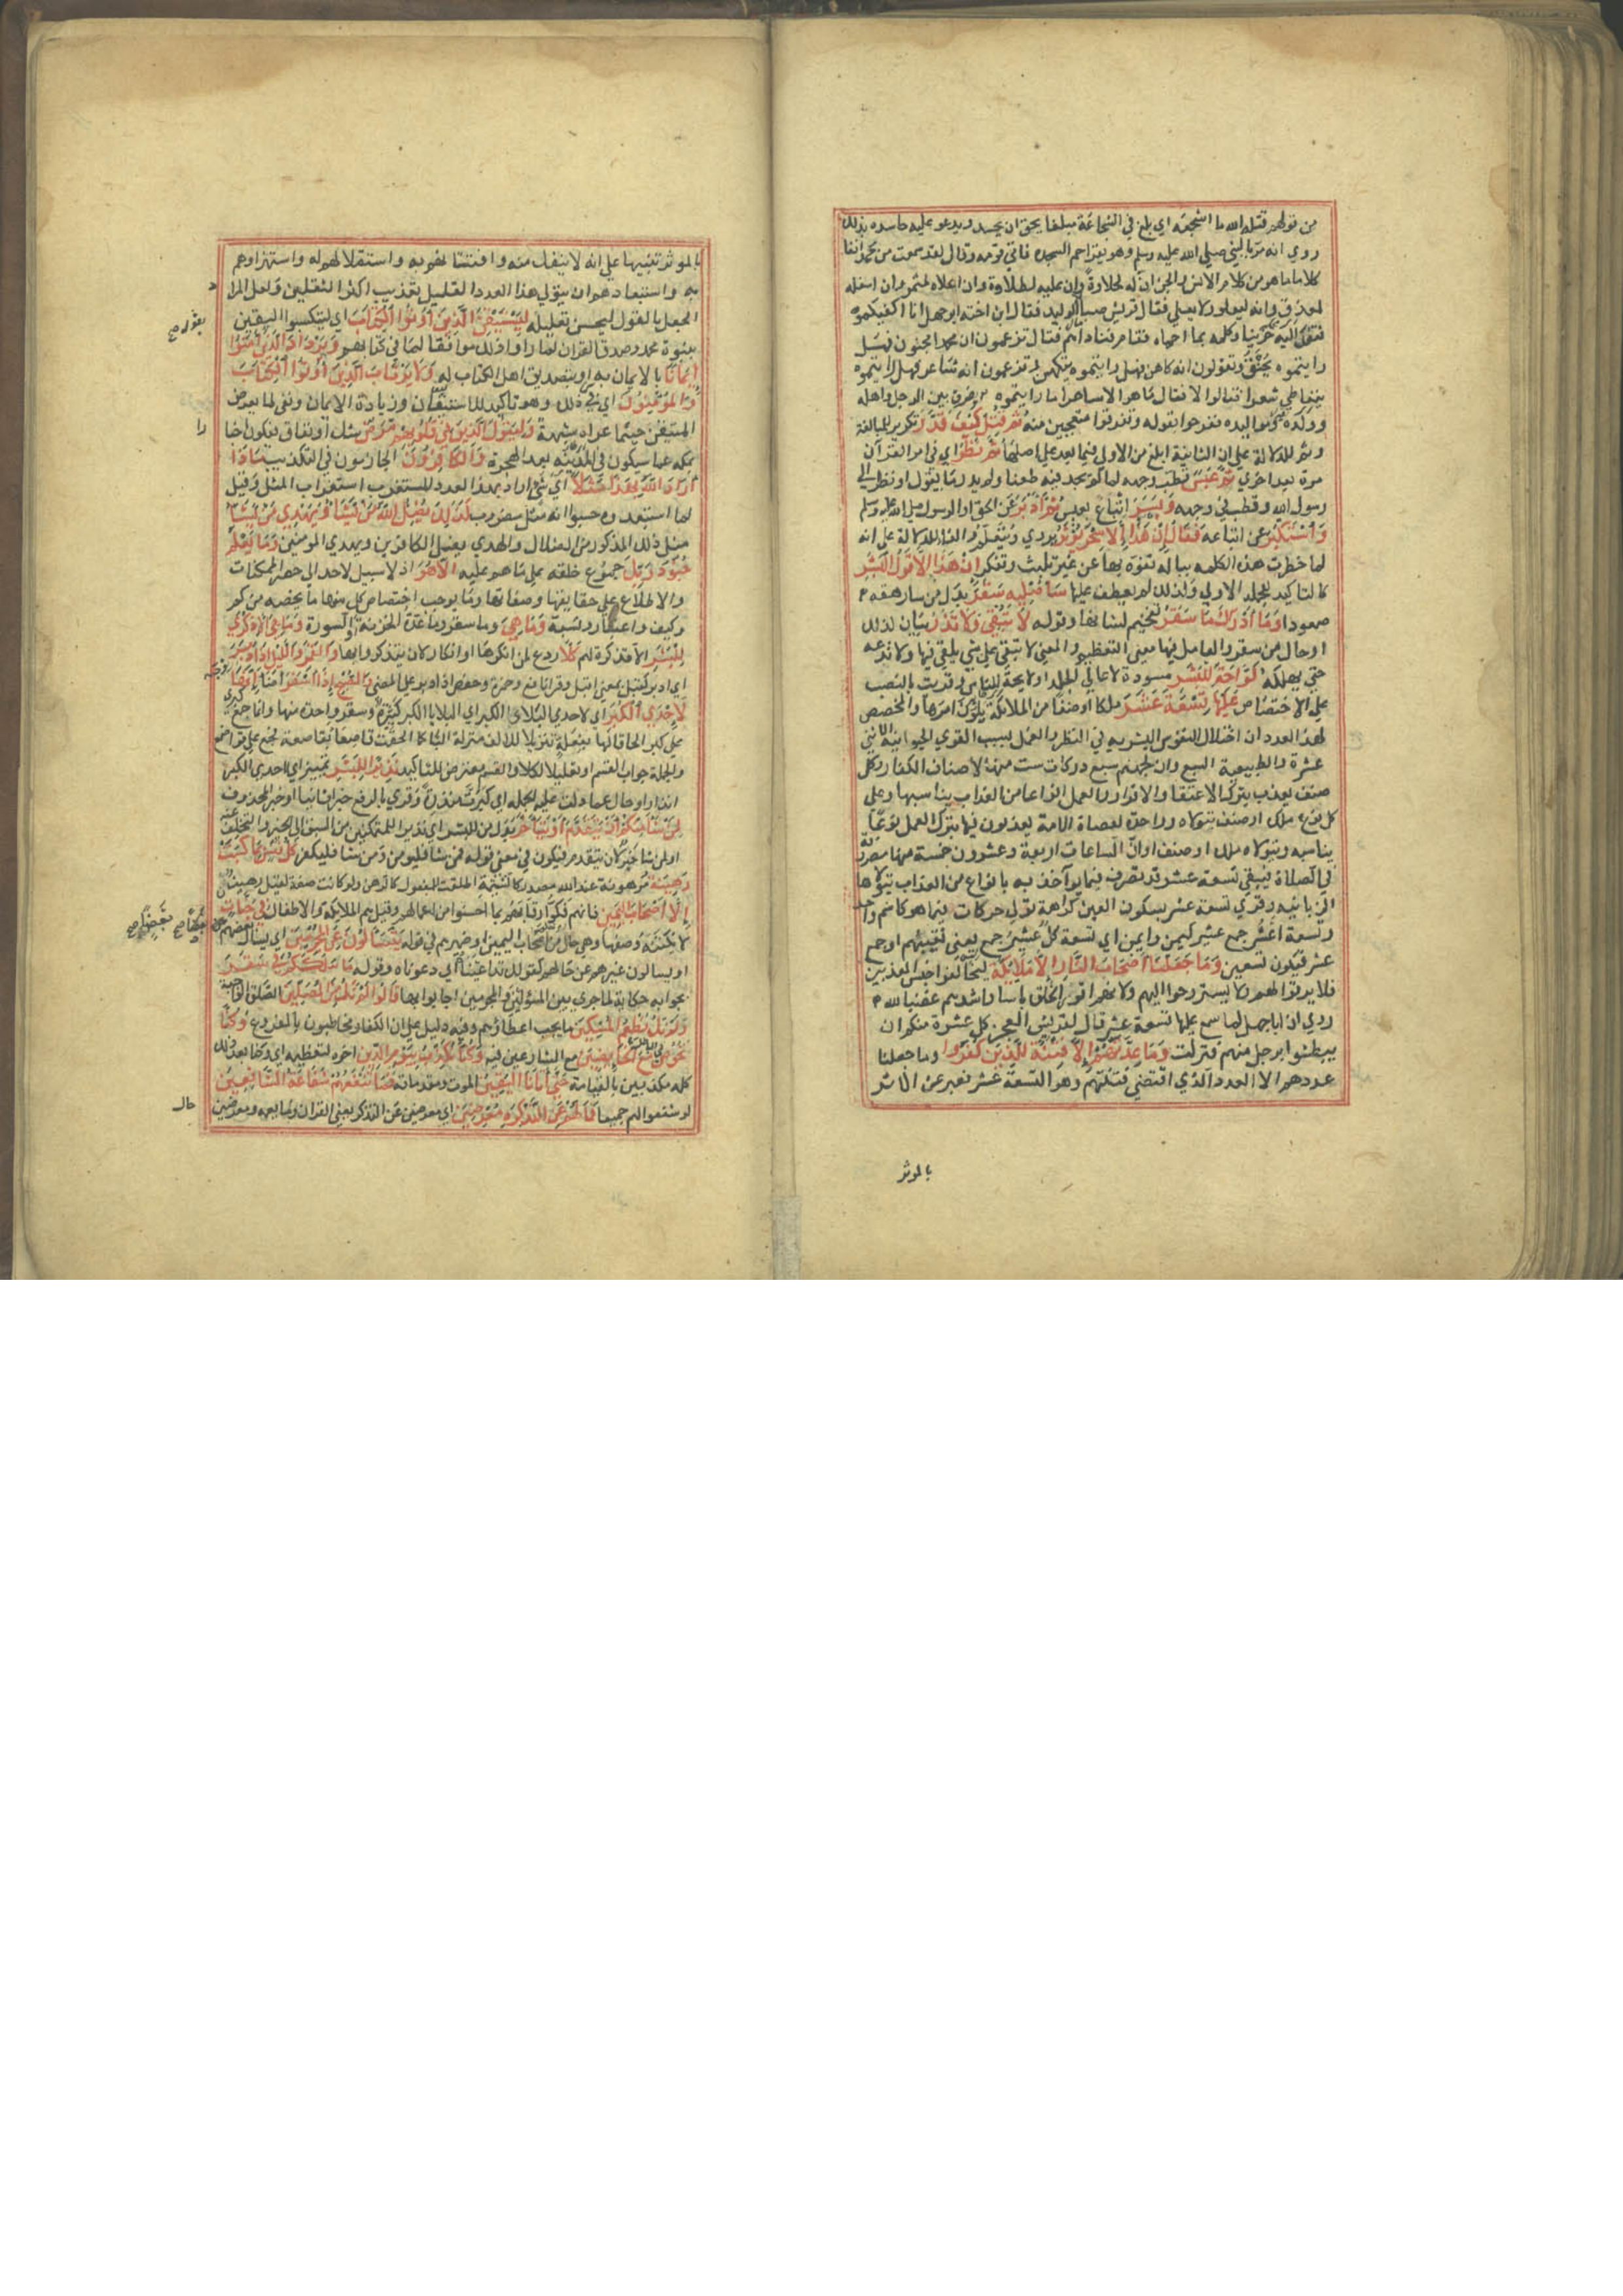 من قولهم قتله الله ما اشجعه اي بلغ في الشجاعة مبلغا يحق ان يحسد ويدعو عليه حاسده بذلك
روي انه مر بالنبي صلى الله عليه وسلم وهو يقرا حم السجده فاتي قومه وقال لقد سمعت من محمد انفا
كلاما ما هو من كلام الانس والجن ان له لحلاوة وان عليه لطلاوة وان اعلاه لمثمر وان اسفله
لمغدق وانه ليعلو ولا يعلي فقال قريش صبا الوليد فقال ابن اخته ابو جهل انا اكفيكموه
فقعد اليه حزينا وكلمه بما احماه فقام فناداهم فقال تزعمون ان محمدا مجنون فهل
رايتموه يخنق وتقولون انه كاهن فهل رايتموه يتكهن وتزعمون انه شاعر فهل رايتموه
يتعاطي شعرا فقالوا لا فقال ما هو الا ساحر اما رايتموه يفرق بين الرجل واهله
وولده ومواليه ففرحوا بقوله وتفرقوا متعجبين منه ثم قتل كيف قدر تكرير للمبالغة
وثم للدلالة علي ان الثانية ابلغ من الاولي وفيما بعد علي اصلها ثم نظر اي في امر القرآن
مرة بعد اخري ثم عبس قطب وجهه لما لم يجد فيه طعنا ولم يدر ما يقول او نظر الي
رسول الله وقطب في وجهه وبسر اتباع لعبس ثم ادبر عن الحق او الرسول صلى الله عليه وسلم
واستكبر عن اتباعه فقال ان هذا الا سحر يؤثر يروي ويتعلم والفا للدلالة علي انه
لما خطرت هذه الكلمه بباله تفوه بها عن غير تلبث وتفكر ان هذا الا قول البشر
كالتاكيد للجملة الاولي ولذلك لم يعطف عليها ساصليه سقر بدل من سارهقه
صعودا وما ادراك ما سقر تفخيم لشانها وقوله لا تبقي ولا تذر بيان لذلك
او حال من سقر والعامل فيها معني التعظيم والمعني لا تبقي علي شي يلقي فيها ولا تدعه
حتي يهلكه لواحة للبشر مسودة لاعالي الجلد او لايحة للناس وقريت بالنصب
علي الاختصاص عليها تسعة عشر ملكا او صنفا من الملائكة يلون امرها والمخصص
لهذا العدد ان اختلال النفوس البشريه في النظر والعمل بسبب القوي الحيوانية الاثني
عشرة والطبيعية السبع وان لجهنم سبع دركات ست منها لاصناف الكفار وكل
صنف يعذب بترك الاعتقاد والاقرار والعمل انواعا من العذاب يناسبها وعلي
كل نوع ملك او صنف يتولاه وواحدة لعصاة الامة يعذبون فيها بترك العمل نوعا
يناسبه ويتولاه ملك او صنف او ان الساعات اربعة وعشرون خمسة منها مصروفة
في الصلاة فيبقي تسعة عشر قد تصرف فيما يوآخذ به بانواع من العذاب يتولاها
الزبانيه وقري تسعة عشر بسكون العين كراهة توالي حركات فيما هو كاسم واحد
وتسعة اعشر جمع عشير كيمين وايمن اي تسعة كل عشير جمع يعني نقيبهم او جمع
عشر فيكون تسعين وما جعلنا اصحاب النار الا ملايكة ليخالفوا جنس المعذبين
فلا يرقوا لهم ولا يستروحوا اليهم ولانهم اقوي الخلق باسا واشدهم غضبا لله
روي ان ابا جهل لما سمع عليها تسعة عشر قال لقريش ايعجز كل عشرة منكم ان
يبطشوا برجل منهم فنزلت وما جعلنا عدتهم الا فتنة للذين كفروا وما جعلنا
عددهم الا العدد الذي اقتضي فتنتهم وهو التسعة عشر فعبر عن الاثر
بالموثر
بالموثر تنبيها علي انه لا ينفك منه وافتتانهم به واستقلالهم له واستهزاوهم
به واستبعادهم ان يتولي هذا العدد القليل تعذيب اكثر الثقلين ولعل المراد
الجعل بالقول ليحسن تعليله ليستيقن الذين اوتوا الكتاب اي ليكتسبوا اليقين
بقوله صح
بنبوة محمد وصدق القران لما راوا ذلك موافقا لما في كتابهم ويزداد الذين امنوا
ايمانا بالايمان به او بتصديق اهل الكتاب له ولا يرتاب الذين اوتوا الكتاب
والمؤمنون اي في ذلك وهو تاكيد للاستيقان وزيادة الايمان ونفي لما يعرض
المتيقن حيثما عراه شبهة وليقول الذين في قلوبهم مرض شك او نفاق فيكون اخبارا
بمكة عما سيكون في المدينه بعد الهجرة والكافرون الجازمون في التكذيب ماذا
اراد الله بهذا مثلا اي شي اراد بهذا العدد المستغرب استغراب المثل وقيل
لما استبعدوه حسبوا انه مثل مضروب كذلك يضل الله من يشا ويهدي من يشا
مثل ذلك المذكور من الضلال والهدي يضل الكافرين ويهدي المومنين وما يعلم
جنود ربك جموع خلقه علي ما هو عليه الا هو اذ لا سبيل لاحد الي حصر الممكنات
والاطلاع علي حقايقها وصفاتها وما يوجب اختصاص كل منها ما يخصه من كم
وكيف واعتبار ونسبة وما هي وما سقر او عدة الخزنة او السورة وما هي الا ذكري
للبشر الا تذكرة لهم كلا ردع لمن انكرها او انكار لان يتذكروا بها والقمر والليل اذا ادبر
اي ادبر كقبل بمعني اقبل وقرا نافع وحمزة وحفص اذ ادبر علي المضي والصبح اذا اسفر اضا انها
لاحدي الكبر اي لاحدي البلايا الكبر اي البلايا الكبر كثيرة وسقر واحدة منها وانما جمع كبري
علي كبر الحاقا لها بفعلة تنزيلا للالف منزلة التا كما الحقت قاصعا بقاصعة فجمع علي قواصع
والجملة جواب القسم او تعليل لكلا والقسم معترض للتاكيد نذيرا للبشر تمييز اي لاحدي الكبر
انذارا او حال عما دلت عليه الجملة اي كبرت منذرة وقري بالرفع خبرا ثانيا او خبر المحذوف
لمن شا منكم ان يتقدم او يتاخر بدل من للبشر اي نذيرا للمتمكنين من السبق الي الخير والتخلف عنه
او لمن شا خبر لان يتقدم فيكون في معني قوله فمن شا فليومن ومن شا فليكفر كل نفس بما كسبت
رهينة مرهونة عند الله مصدر كالشتيمة اطلقت للمفعول كالرهن ولو كانت صفة لقيل رهين
الا اصحاب اليمين فانهم فكوا رقابهم بما احسنوا من اعمالهم وقيل هم الملايكة او الاطفال في جنات
لا يكتنه وصفها وهي حال من اصحاب اليمين او ضميرهم في قوله يتسالون عن المجرمين اي يسال بعضهم
بعضا صح
او يسالون غيرهم عن حالهم كقولك تداعيناه اي دعوناه وقوله ما سلككم في سقر
بجوابه حكاية لما جري بين المسؤلين والمجرمين اجابوا بها قالوا لم نك من المصلين الصلاة الواجبة
ولم نك نطعم المسكين ما يجب اعطاؤهم وفيه دليل علي ان الكفار مخاطبون بالفروع وكنا
نخوض مع الخايضين مع الشارعين فيه وكنا نكذب بيوم الدين اخره لتعظيمه اي وكنا بعد ذلك
كله مكذبين بالقيامة حتي اتانا اليقين الموت ومقدماته فما تنفعهم شفاعة الشافعين
لو شفعوا لهم جميعا فما لهم عن التذكرة معرضين اي معرضين عن التذكر يعني القران وما يعمه ومعرضين
حال